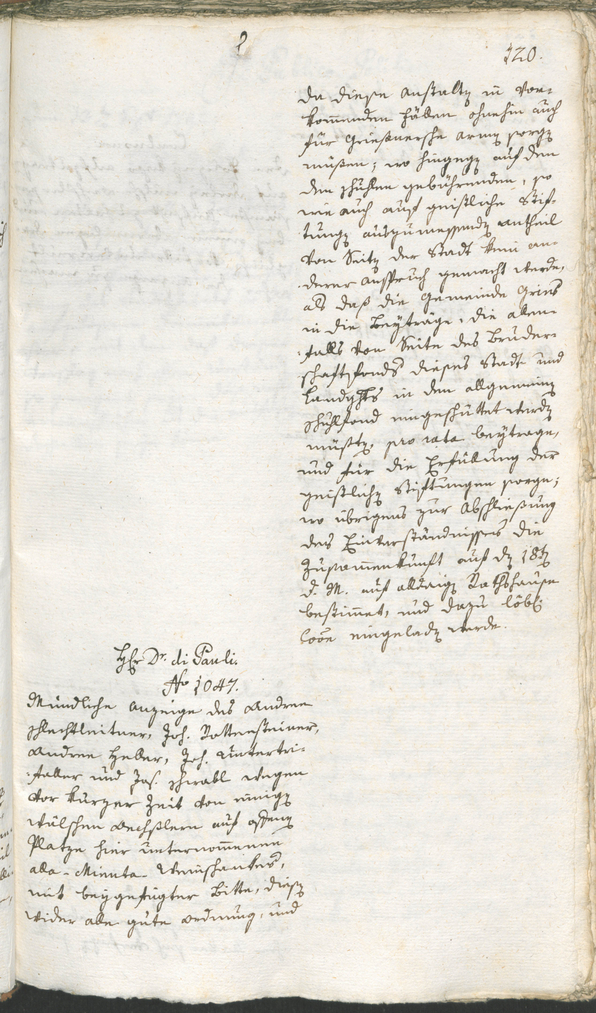 120.
da diese Anstalten in vor-
kommenden Fällen ohnehin auch
für Grießnersche Arme sorgen
müßen; wo hingegen auf den
den Schullen gebührenden, so
wie auch aus geistliche Stif-
tungen auszumessenden Antheil
von Seiten der Stadt kein an-
derer Anspruch gemacht werde,
als daß die Gemeinde Gries
in die Beyträge, die allen-
falls von Seite des Bruder-
schaftsfonds dieses Stadt und
Landghts in den allgemeinen
Schulfond eingeschüttet werden
müßten, pro rata beytrage,
und für die Erfüllung der
geistlichen Stiftungen sorge;
wo übrigens zur Abschließung
des Einverständnisses die
Zusammenkunft auf den 18ten
d. M. auf allhiesigen Rathshause
bestimmet, und dazu löbl.
eingeladen werde.
Hr Dr. di Pauli.
No 1047.
Mündliche Anzeige des Andree
Schlechtleitner, Joh. Rottensteiner,
Andree Heller, Joh. Untertri-
faller und Jos. Schrabl wegen
vor kurzer Zeit von einigen
wälschen Wechslern auf offenen
Platze hier unternommenen
alla-Minuta Weinschankes,
mit beygefügter Bitte, diesen
wider alle gute Ordnung, und